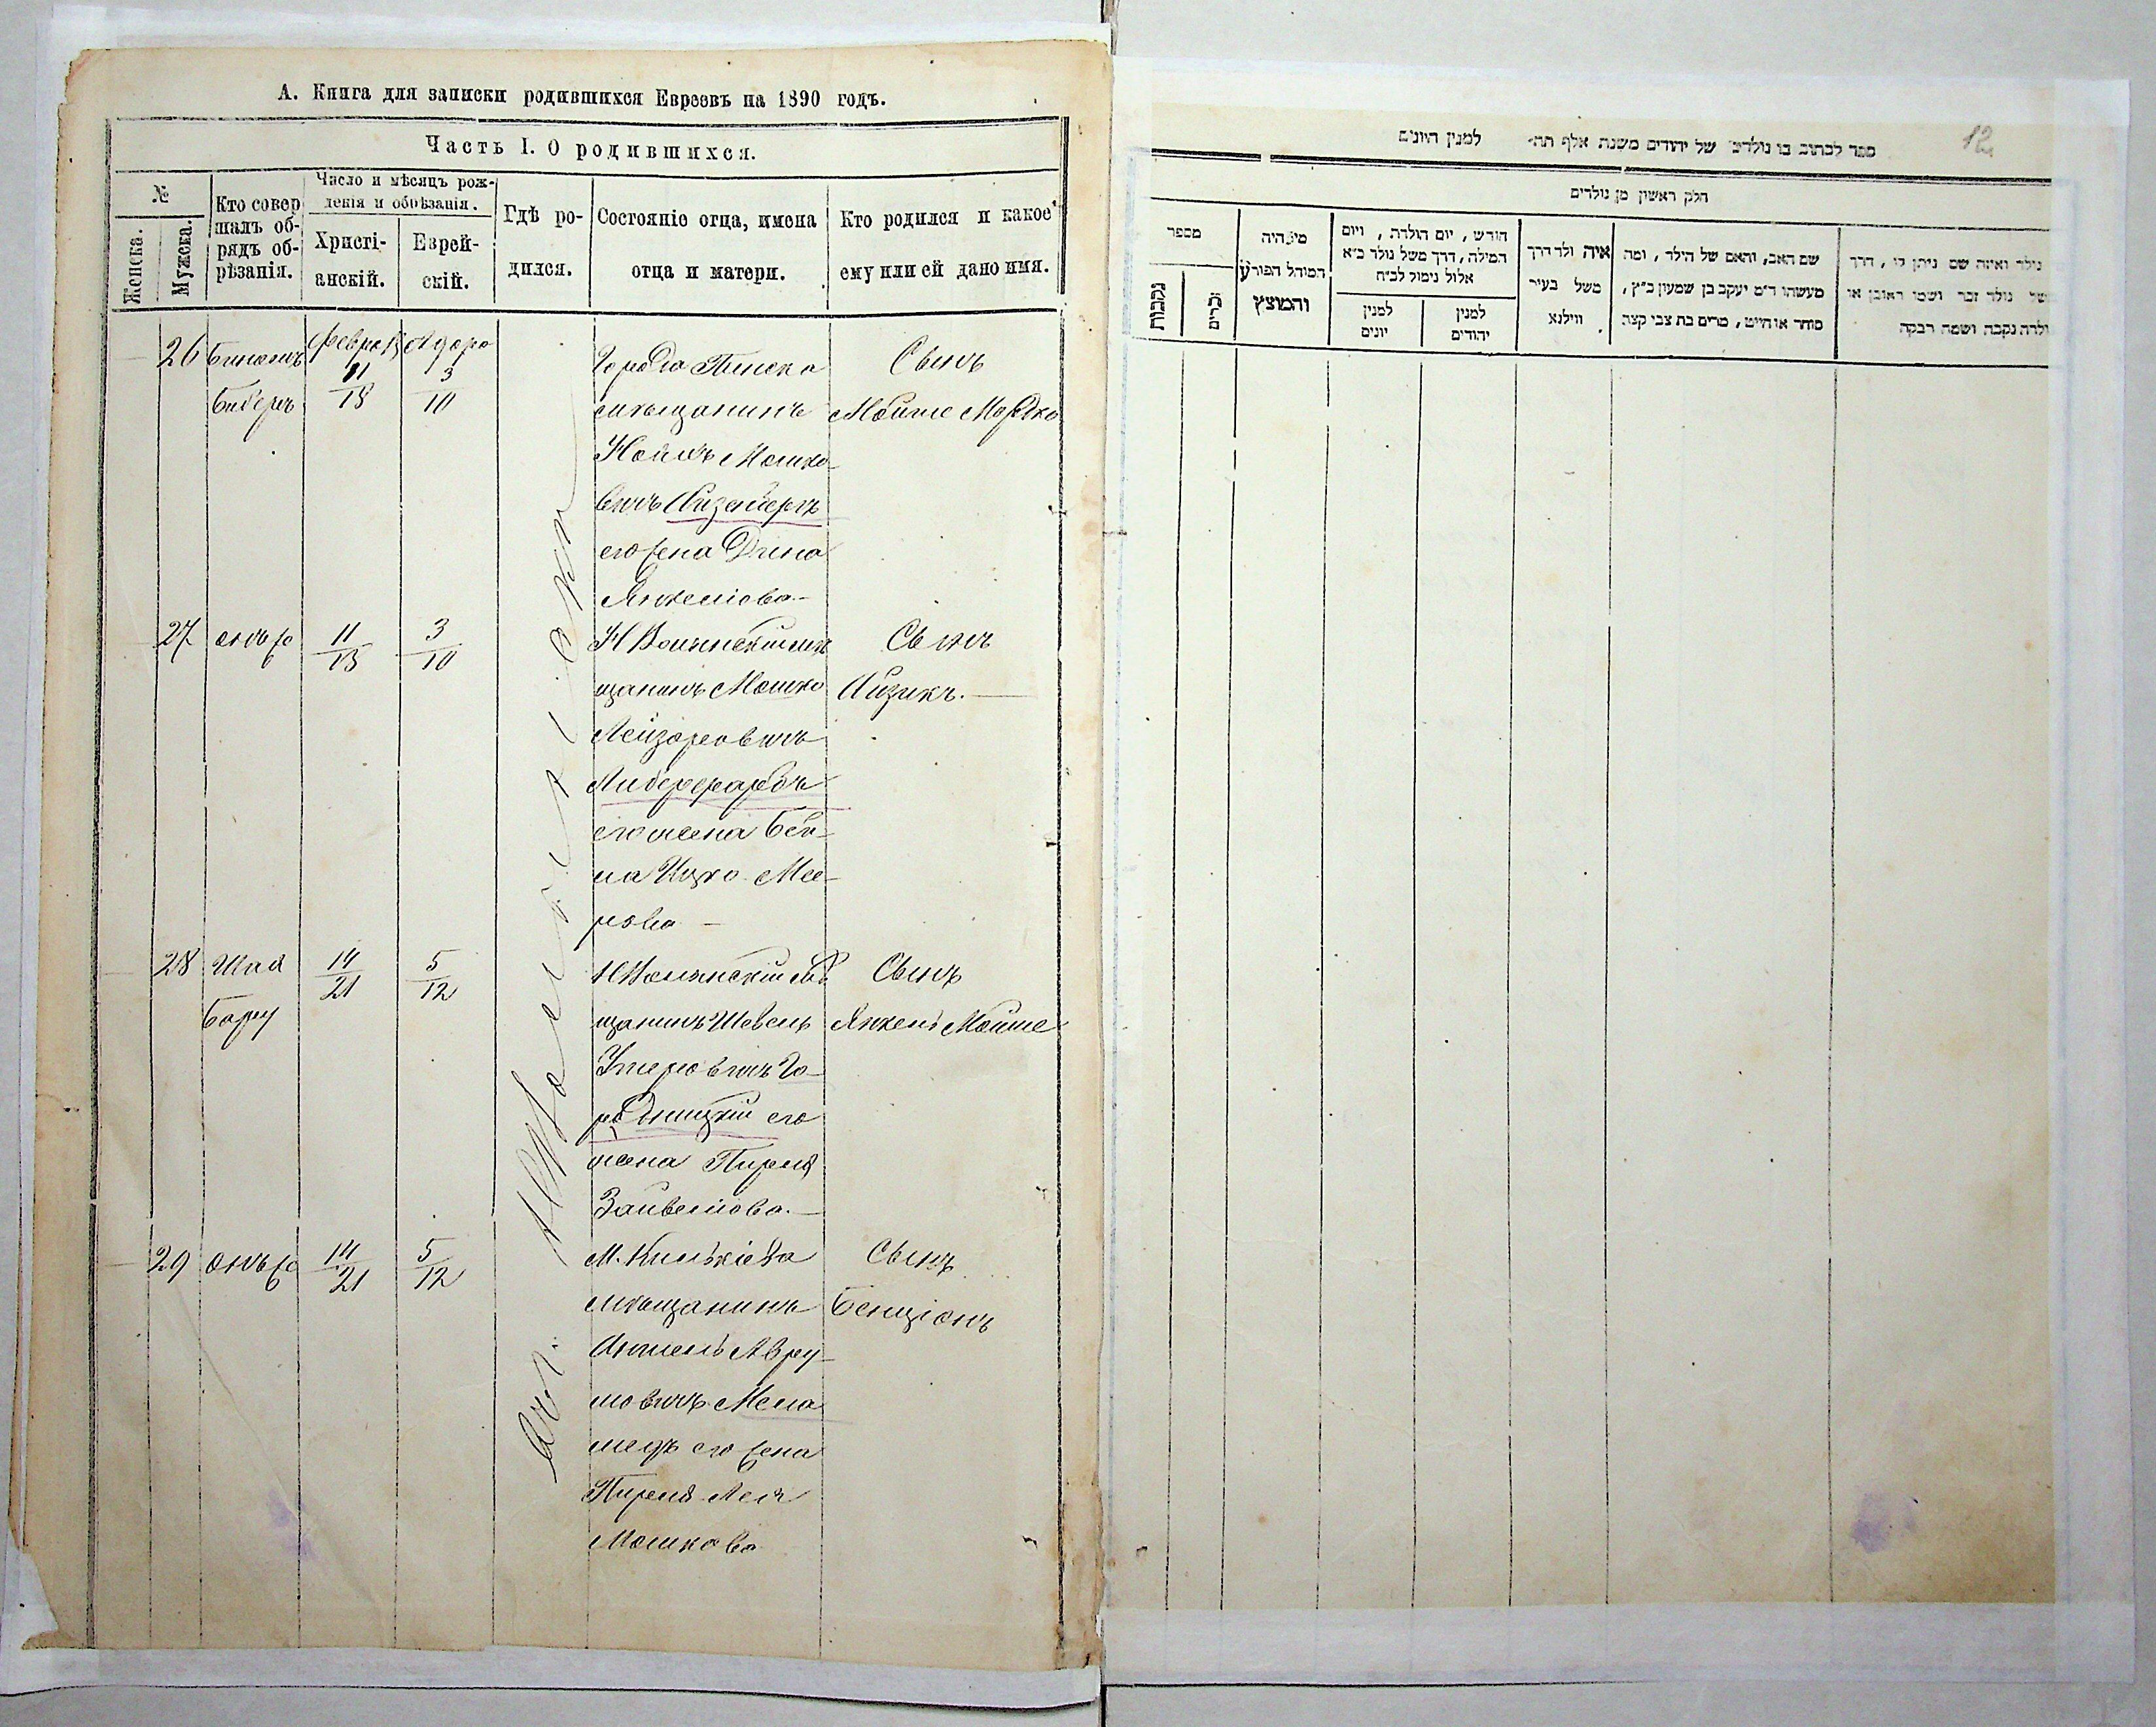 А. Книга для записки родившихся Евреевъ на 1890 годъ.
Часть I. О родившихся.
№
Женска.
Мужска.
Кто совер
шалъ об-
рядъ об-
рѣзанія.
Число и мѣсяцъ рож-
денія и обрѣзанія.
Христі-
анскій.
Еврей-
скій.
Гдѣ ро-
дился.
Состояніе отца, имена
отца и матери.
Кто родился и какое
ему или ей дано имя.
26
Биберъ
Адара
11
18
3
10
Города Пинска
мѣщанинъ
Мошко-
вичъ Айзенбергъ
его жена Дина
Янкелiова.-
Сынъ
Мойше Мордко
27
онъ же
11
18
3
10
Н Волынскій мѣ
щанинъ Мошко
Лейзоровичъ
Либерфарбъ
его жена Бей-
ла Меe-
рова -
Сынъ
Айзикъ.-
28
Шая
Бару
14
21
5
12
Н Волынскій мѣ
щанинъ Шевель
Умеровичъ Го-
родницкій его
жена Пирля
Зайвелiова.-
Сынъ
Янкель Мойше
29
онъ же
14
21
5
12
М. Килькіева
мѣщанинъ
Аншель Авру-
мовичъ Мела
медъ его жена
Пирля Лея
Мошкова
Сынъ
Бенціонъ
12
ספר לכתוב בו נולדים של יהודים משנת אלף תת׳ למנין היונים
חלק ראשון מן נולדים
מספר
נקבות
זכרים
מי היה
המוהל הפורע
והמוצץ
חודש, יום הולדת, ויום
המילה, דרך משל נולד כ״א
אלול נימול לכ״ח
למנין
יונים
למנין
יהודים
איה ולד דרך
משל בעיר
ווילנא
שם האב, והאם של הילד, ומה
מעשהו ד״מ יעקב בן שמעין כ״ץ,
סוחר או חייט, מרים בת צבי קצה
נילד ואיזה שם ניתן לו, דרך
משל נולד זכר ושמו ראובן או
ילדה נקבה ושמה רבקה